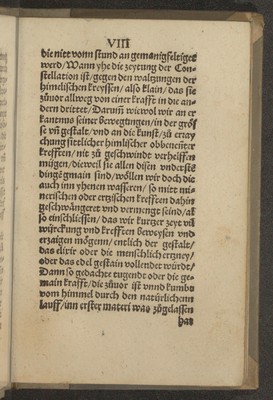 VIII
die nitt vonn stund an gemanigfeltiget
werd/ Wann yhe die zeytung der Con-
stellation ist/ gegen den waltzungen der
himelischen kreyssen/ also klain/ das sie
zuͦuor allweg von einer krafft in die an
dern drittet/ Darum̃ wiewol wir an er
kantnus seiner bewegtungen/ in der groͤs
se vn̄ gestalt/ vnd an die kunst/ zuͦ erray
chung sittlicher himlischer obbenenter
krefften/ nit zuͦ geschwindt verhelffen
muͤgen/ dieweil sie allen disen vnderste
dingẽ gmain sind/ woͤllen wir doch die
auch inn yhenen wasseren/ so mitt mi-
nerischen oder ertzischen krefften dahin
geschwaͤngeret vnd vermengt seind/ al
so einschliessen/ das wir kurtzer zeyt vil
wuͤrckung vnd krefften beweysen vnd
erzaigen moͤgenn/ entlich der gestalt/
das elixir oder die menschlich ertzney/
oder das edel gestain vollendet wuͤrdt/
Dann so gedachte tugendt oder die ge-
main krafft/ die zuͦuor ist vnnd kumbt
vom himmel durch den natuͤrlichenn
lauff/ inn erster materi was zuͦgelassen
hat